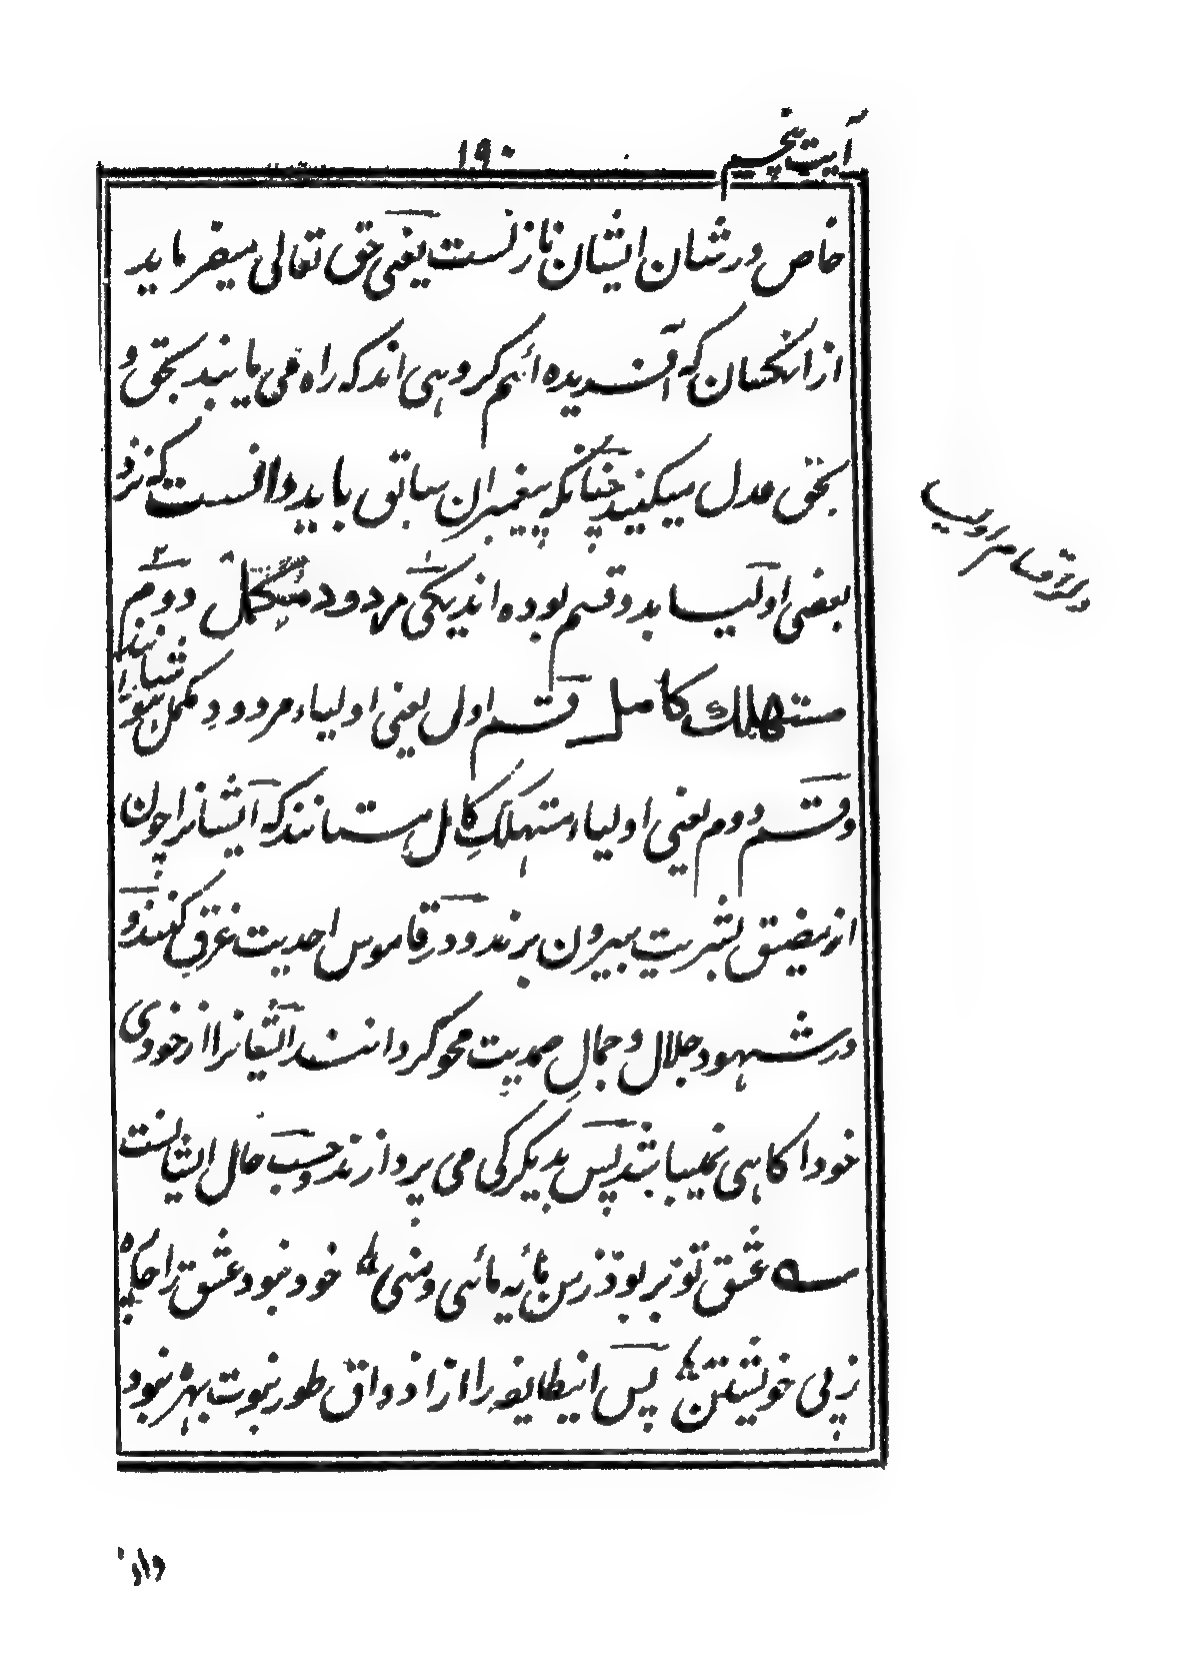 آیت پنجم
۱۹۰
خاص در شان ایشان نازلست یعنی حق تعالی میفرماید
از انکسان که آفریده ائم گروهی اند که راه می یابند بحق و
بحق عدل میکنند چنانکه پیغمبران سابق باید دانست که نزد
بعضی اولیا بدو قسم بوده اند یکی مردود مکمل دوم
مستهلک کامل قسم اول یعنی اولیاء مردود مکمل
و قسم دوم یعنی اولیاء مستهلک کامل مستانند که ایشانرا چون
از مضیق بشریت بیرون برند و در قاموس احدیت غرق کنند و
در شهود جلال و جمال صمدیت محو گردانند ایشانرا از خودی
خود اگاهی نمیباشد پس بدیگری کی می پردازند و حسب حال ایشانست
عشق تو بربود ز من مایه مائی و منی خود نبود عشق ترا چاره
ز بی خویشتن پس انیطایفه را از اذواق طور نبوت بهره نبود
در اقسام اولیا